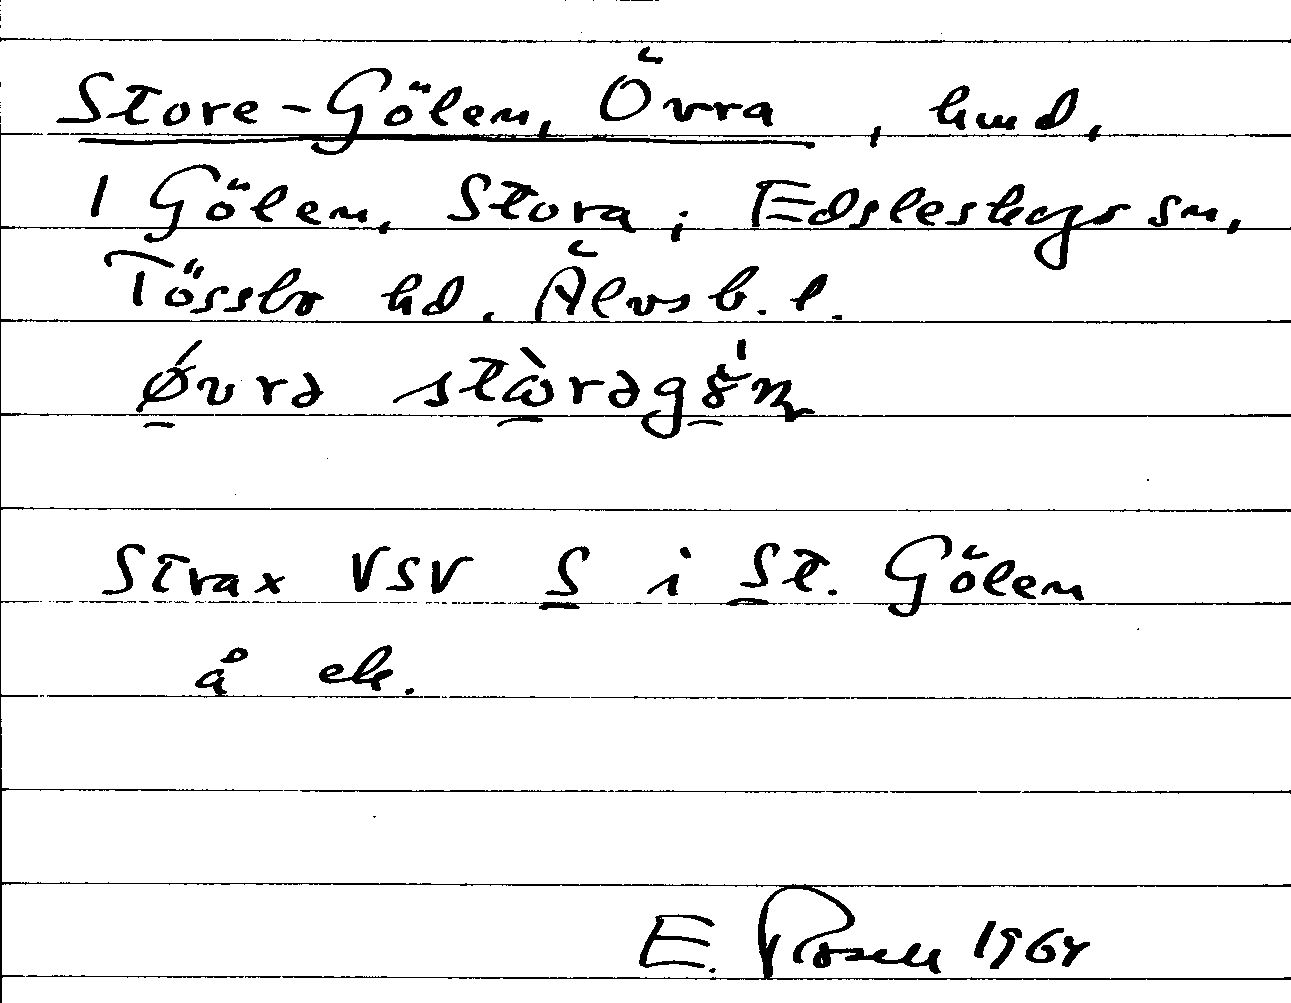 Store-Gölen, Övra, hmd,
i Gölen, Stora; Edsleskogs sn,
Tössbo hd. Älvsb. l.
Strax VSV S i St. Gölen
å ek.
E. Rosell 1964